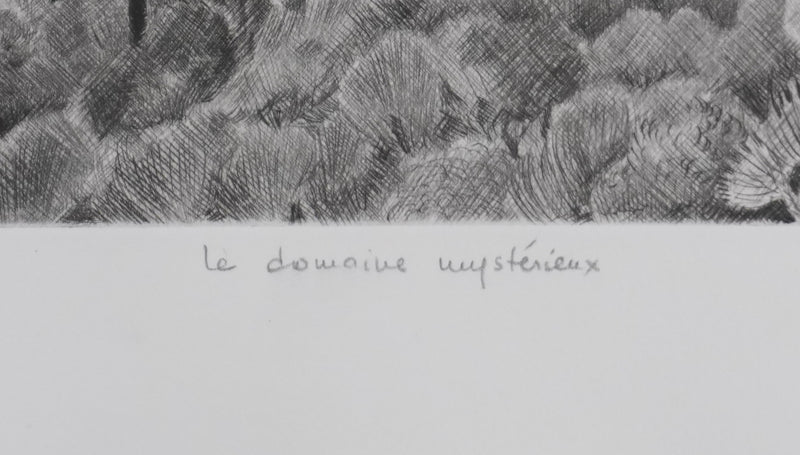 le domaine mystérieux